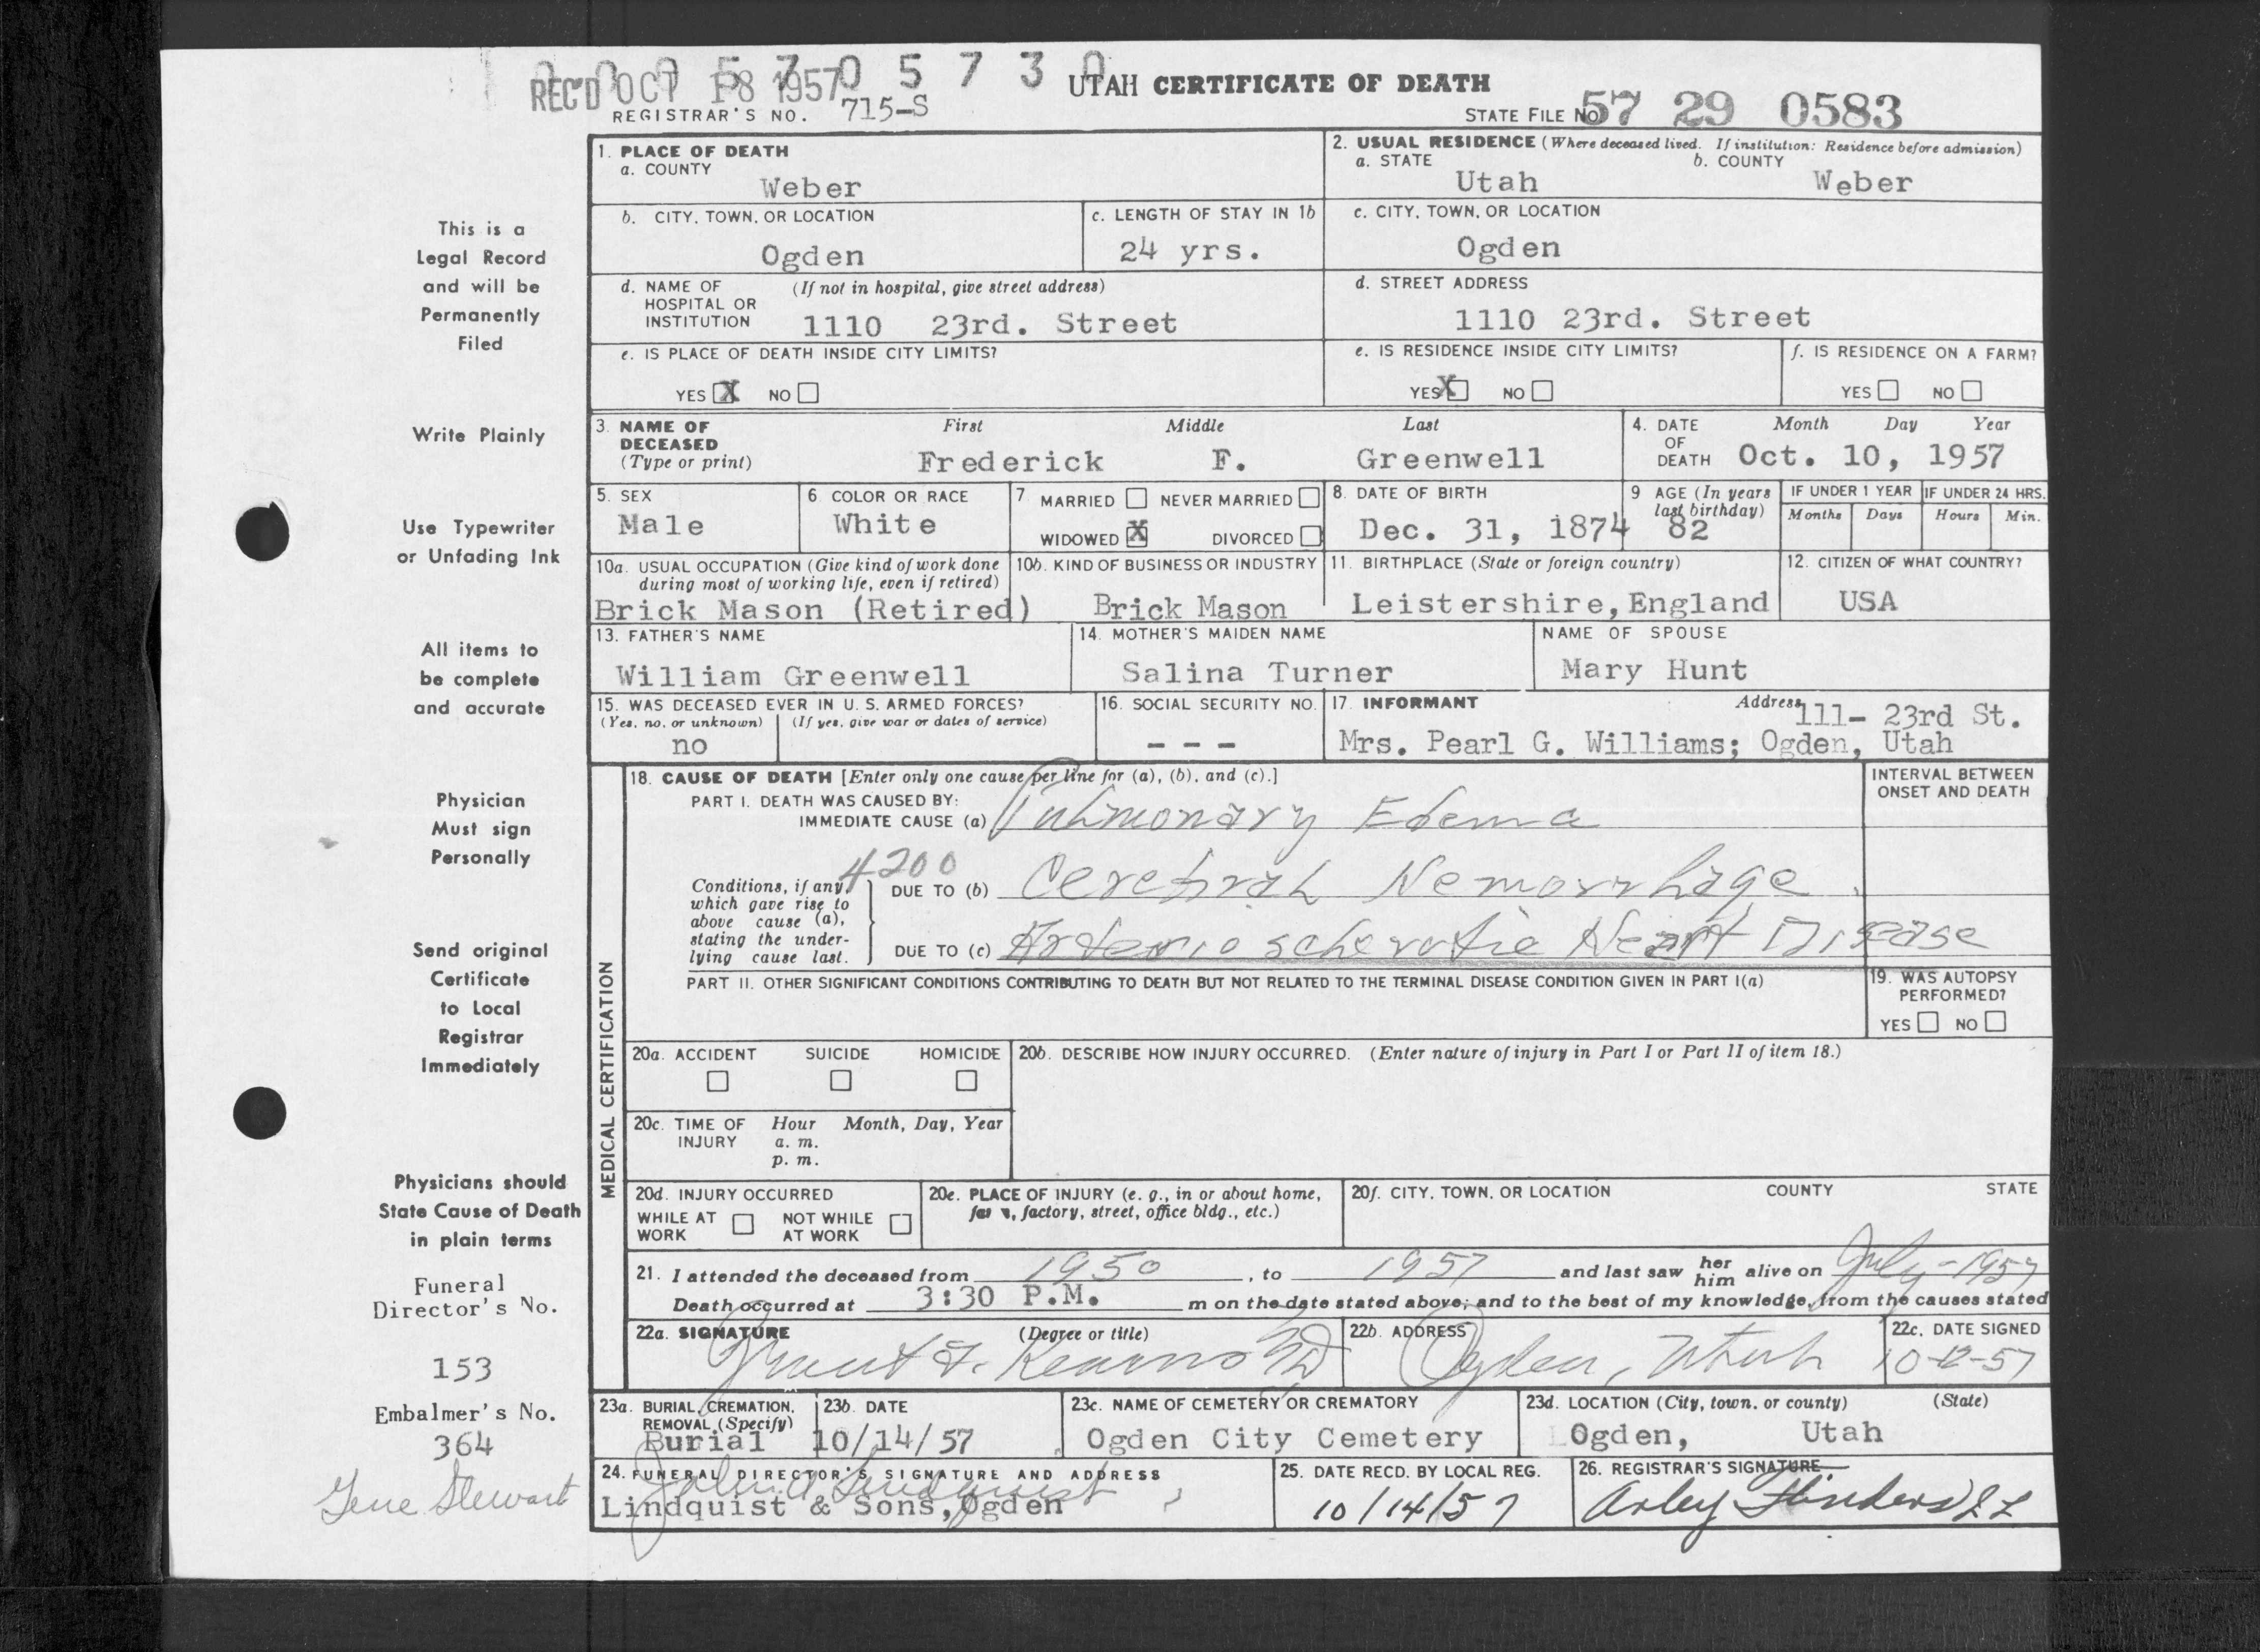 0 0 0 5 7 0 5 7 3 0
REC'D OCT 18 1957
UTAH CERTIFICATE OF DEATH
REGISTRAR'S NO. 715-S
STATE FILE NO. 57 29 0583
1. PLACE OF DEATH
a. COUNTY
Weber
2. USUAL RESIDENCE (Where deceased lived. If institution: Residence before admission)
a. STATE b. COUNTY
Utah Weber
b. CITY, TOWN, OR LOCATION
Ogden
c. LENGTH OF STAY IN 1b
24 yrs.
c. CITY, TOWN, OR LOCATION
Ogden
d. NAME OF (If not in hospital, give street address)
HOSPITAL OR
INSTITUTION 1110 23rd. Street
d. STREET ADDRESS
1110 23rd. Street
e. IS PLACE OF DEATH INSIDE CITY LIMITS?
YES X NO
e. IS RESIDENCE INSIDE CITY LIMITS?
YES X NO
f. IS RESIDENCE ON A FARM?
YES NO
3. NAME OF DECEASED (Type or print)
First Middle Last
Frederick F. Greenwell
4. DATE OF DEATH
Month Day Year
Oct. 10, 1957
5. SEX
Male
6. COLOR OR RACE
White
7. MARRIED NEVER MARRIED
WIDOWED X DIVORCED
8. DATE OF BIRTH
Dec. 31, 1874
9 AGE (In years last birthday)
82
IF UNDER 1 YEAR
Months Days
IF UNDER 24 HRS.
Hours Min.
10a. USUAL OCCUPATION (Give kind of work done
during most of working life, even if retired)
Brick Mason (Retired)
10b. KIND OF BUSINESS OR INDUSTRY
Brick Mason
11. BIRTHPLACE (State or foreign country)
Leistershire, England
12. CITIZEN OF WHAT COUNTRY?
USA
13. FATHER'S NAME
William Greenwell
14. MOTHER'S MAIDEN NAME
Salina Turner
NAME OF SPOUSE
Mary Hunt
15. WAS DECEASED EVER IN U. S. ARMED FORCES?
(Yes, no, or unknown) (If yes, give war or dates of service)
no
16. SOCIAL SECURITY NO.
- - -
17. INFORMANT Address
111- 23rd St.
Mrs. Pearl G. Williams; Ogden, Utah
MEDICAL CERTIFICATION
18. CAUSE OF DEATH [Enter only one cause per line for (a), (b), and (c).]
PART I. DEATH WAS CAUSED BY:
IMMEDIATE CAUSE (a) Pulmonary Edema
INTERVAL BETWEEN
ONSET AND DEATH
4200
Conditions, if any,
which gave rise to
above cause (a),
stating the under-
lying cause last.
DUE TO (b) Cerebral Hemorrhage
DUE TO (c) Arterio sclerotic Heart Disease
PART II. OTHER SIGNIFICANT CONDITIONS CONTRIBUTING TO DEATH BUT NOT RELATED TO THE TERMINAL DISEASE CONDITION GIVEN IN PART I(a)
19. WAS AUTOPSY
PERFORMED?
YES NO
20a. ACCIDENT SUICIDE HOMICIDE
20b. DESCRIBE HOW INJURY OCCURRED. (Enter nature of injury in Part I or Part II of item 18.)
20c. TIME OF INJURY
Hour Month, Day, Year
a. m.
p. m.
20d. INJURY OCCURRED
WHILE AT WORK NOT WHILE AT WORK
20e. PLACE OF INJURY (e. g., in or about home,
farm, factory, street, office bldg., etc.)
20f. CITY, TOWN, OR LOCATION COUNTY STATE
21. I attended the deceased from 1950, to 1957 and last saw her him alive on July - 1957
Death occurred at 3:30 P.M. m on the date stated above; and to the best of my knowledge, from the causes stated
22a. SIGNATURE (Degree or title)
22b. ADDRESS
Ogden, Utah
22c. DATE SIGNED
10-12-57
23a. BURIAL, CREMATION,
REMOVAL (Specify)
Burial
23b. DATE
10/14/57
23c. NAME OF CEMETERY OR CREMATORY
Ogden City Cemetery
23d. LOCATION (City, town, or county) (State)
Ogden, Utah
24. FUNERAL DIRECTOR'S SIGNATURE AND ADDRESS
John A Lindquist
Lindquist & Sons, Ogden
25. DATE RECD. BY LOCAL REG.
10/14/57
26. REGISTRAR'S SIGNATURE
Arley Flinders
This is a
Legal Record
and will be
Permanently
Filed
Write Plainly
Use Typewriter
or Unfading Ink
All items to
be complete
and accurate
Physician
Must sign
Personally
Send original
Certificate
to Local
Registrar
Immediately
Physicians should
State Cause of Death
in plain terms
Funeral
Director's No.
153
Embalmer's No.
364
Gene Stewart